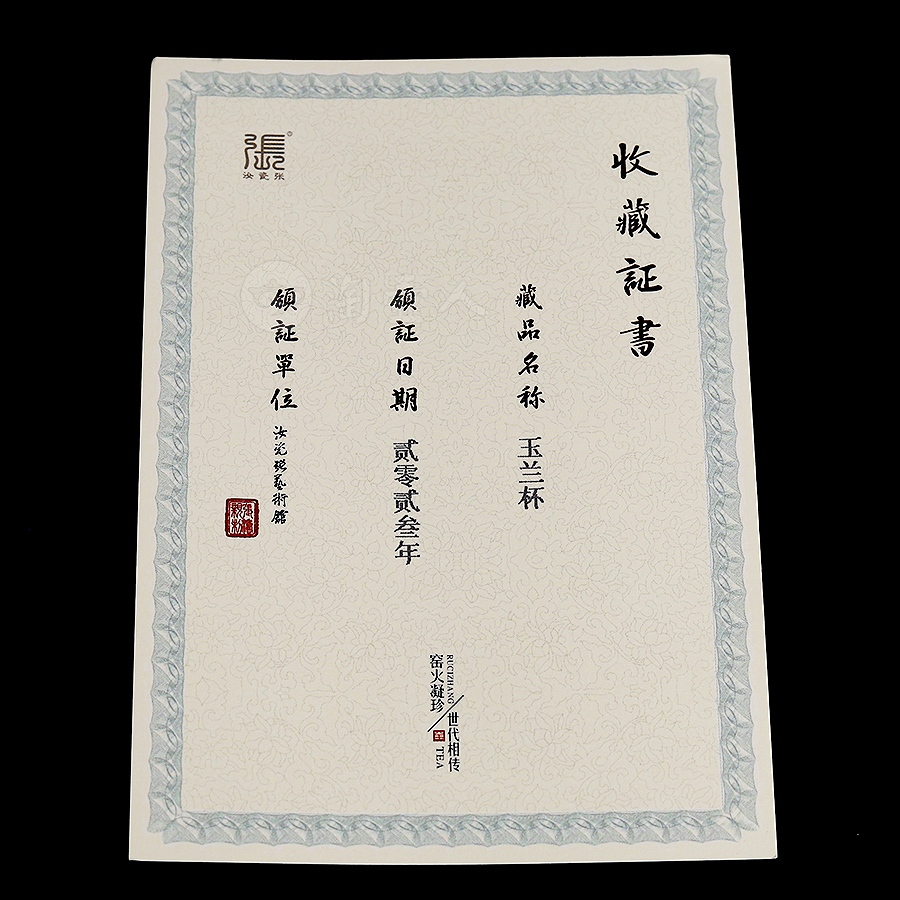 收藏証書
藏品名称 玉兰杯
領証日期 贰零贰叁年
領証單位 汝瓷張藝術館
張
汝瓷张
RUCIZHANG
世代相传
窑火凝珍
TEA